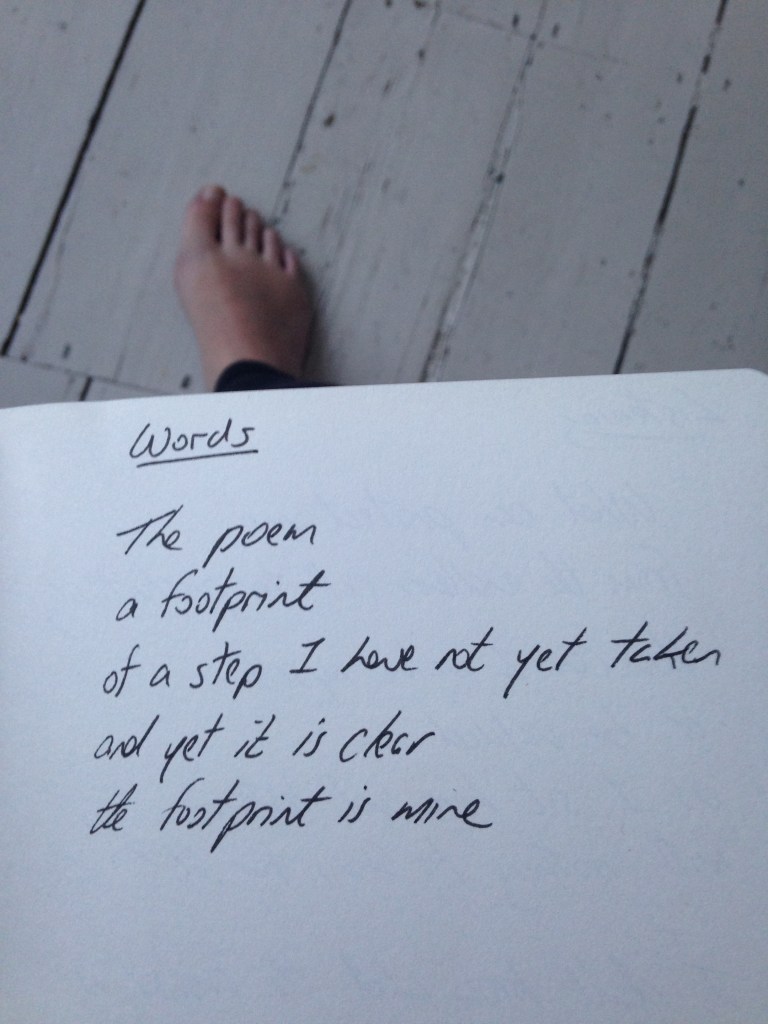 Words
The poem
a footprint
of a step I have not yet taken
and yet it is clear
the footprint is mine